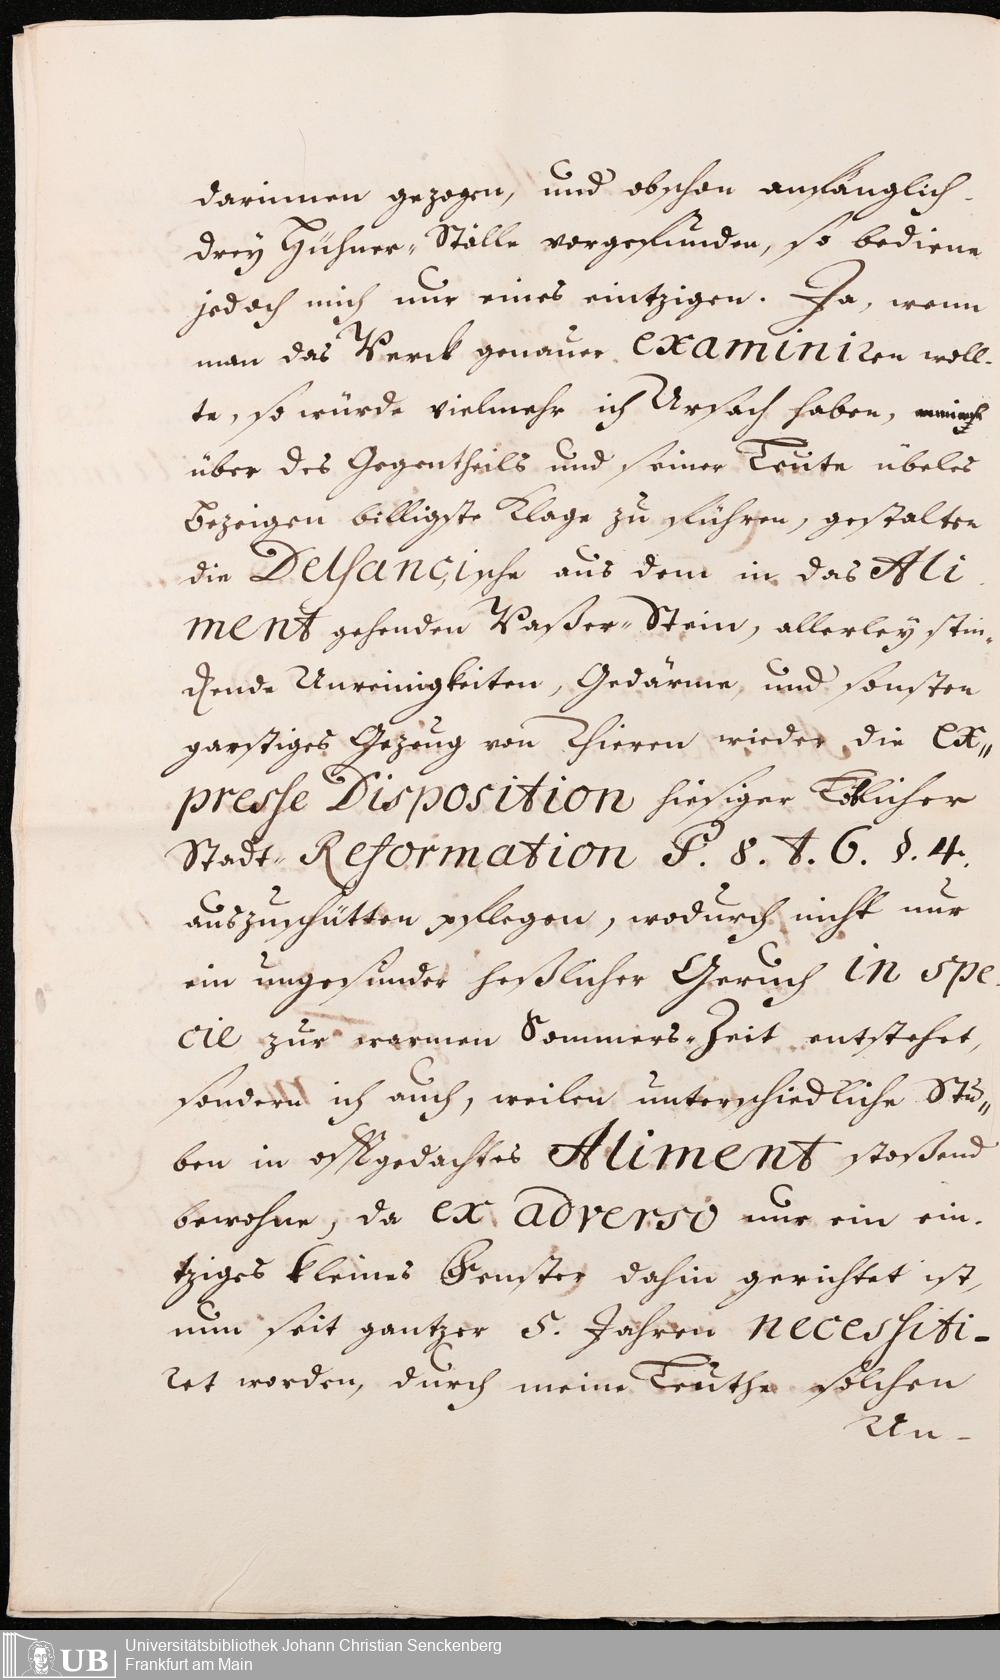 darinnen gezogen, und obschon anfänglich
drey Hühner-Ställe vorgefunden, so bediene
jedoch mich nur eines eintzigen. Ja, wenn
man das Werck genauer examiniren woll-
te, so würde vielmehr ich Ursach haben,
über des Gegentheils und seiner Leute übeles
Bezeigen billigste Klage zu führen, gestalten
die Delsançische aus dem in das Ali
ment gehenden Waßer-Stein, allerley stin-
ckende Unreinigkeiten, Gedärme, und sonsten
garstiges Gezeug von Thieren wieder die ex-
presse Disposition hiesiger Löblicher
Stadt-Reformation P. 8. t. 6. §. 4.
auszuschütten pflegen, wodurch nicht nur
ein ungesunder heßlicher Geruch in spe-
cie zur warmen Sommers-Zeit entstehet,
sondern ich auch, weilen unterschiedliche Stu-
ben in offtgedachtes Aliment stoßend
bewohne, da ex adverso nur ein ein-
tziges kleines Fenster dahin gerichtet ist,
nun seit gantzer 5. Jahren necessiti-
ret worden, durch meine Leuthe solchen
Un-
UB Universitätsbibliothek Johann Christian Senckenberg
Frankfurt am Main